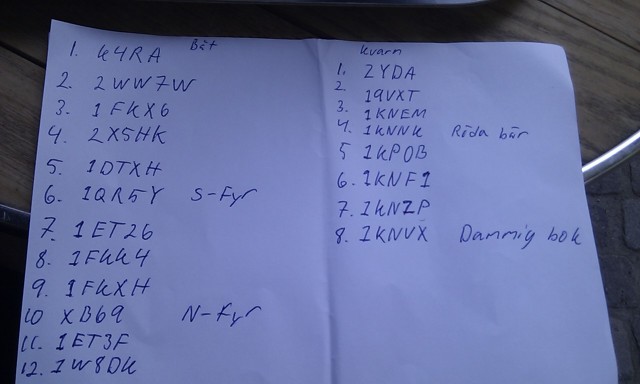 Båt
1. K4RA
2. 2WW7W
3. 1FKX6
4. 2X5HK
5. 1DTXH
6. 1QR5Y S-Fyr
7. 1ET26
8. 1FKK4
9. 1FKXH
10 XB69 N-Fyr
11. 1ET3F
12. 1W8DK
Kvarn
1. ZYDA
2 19VXT
3. 1KNEM
4. 1KNNK Röda bär
5 1KPOB
6. 1KNF1
7. 1KNZP
8. 1KNVX Dammig bok